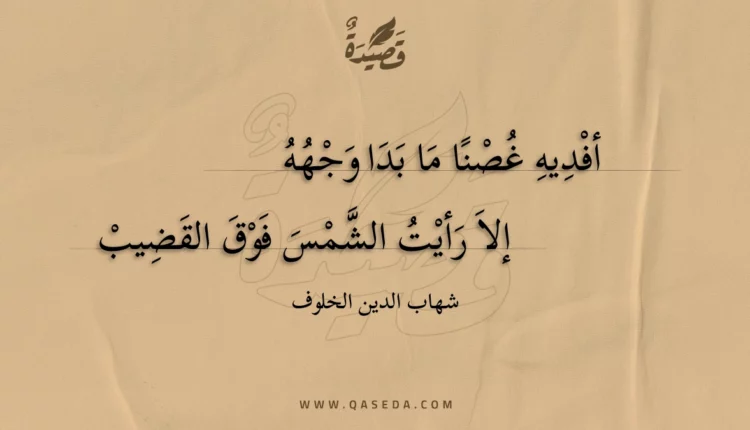 قَصِيْدَةٌ
أفْدِيهِ غُصْنًا مَا بَدَا وَجْهُهُ
إلاَ رَأيْتُ الشَّمْسَ فَوْقَ القَضِيبْ
شهاب الدين الخلوف
WWW.QASEDA.COM